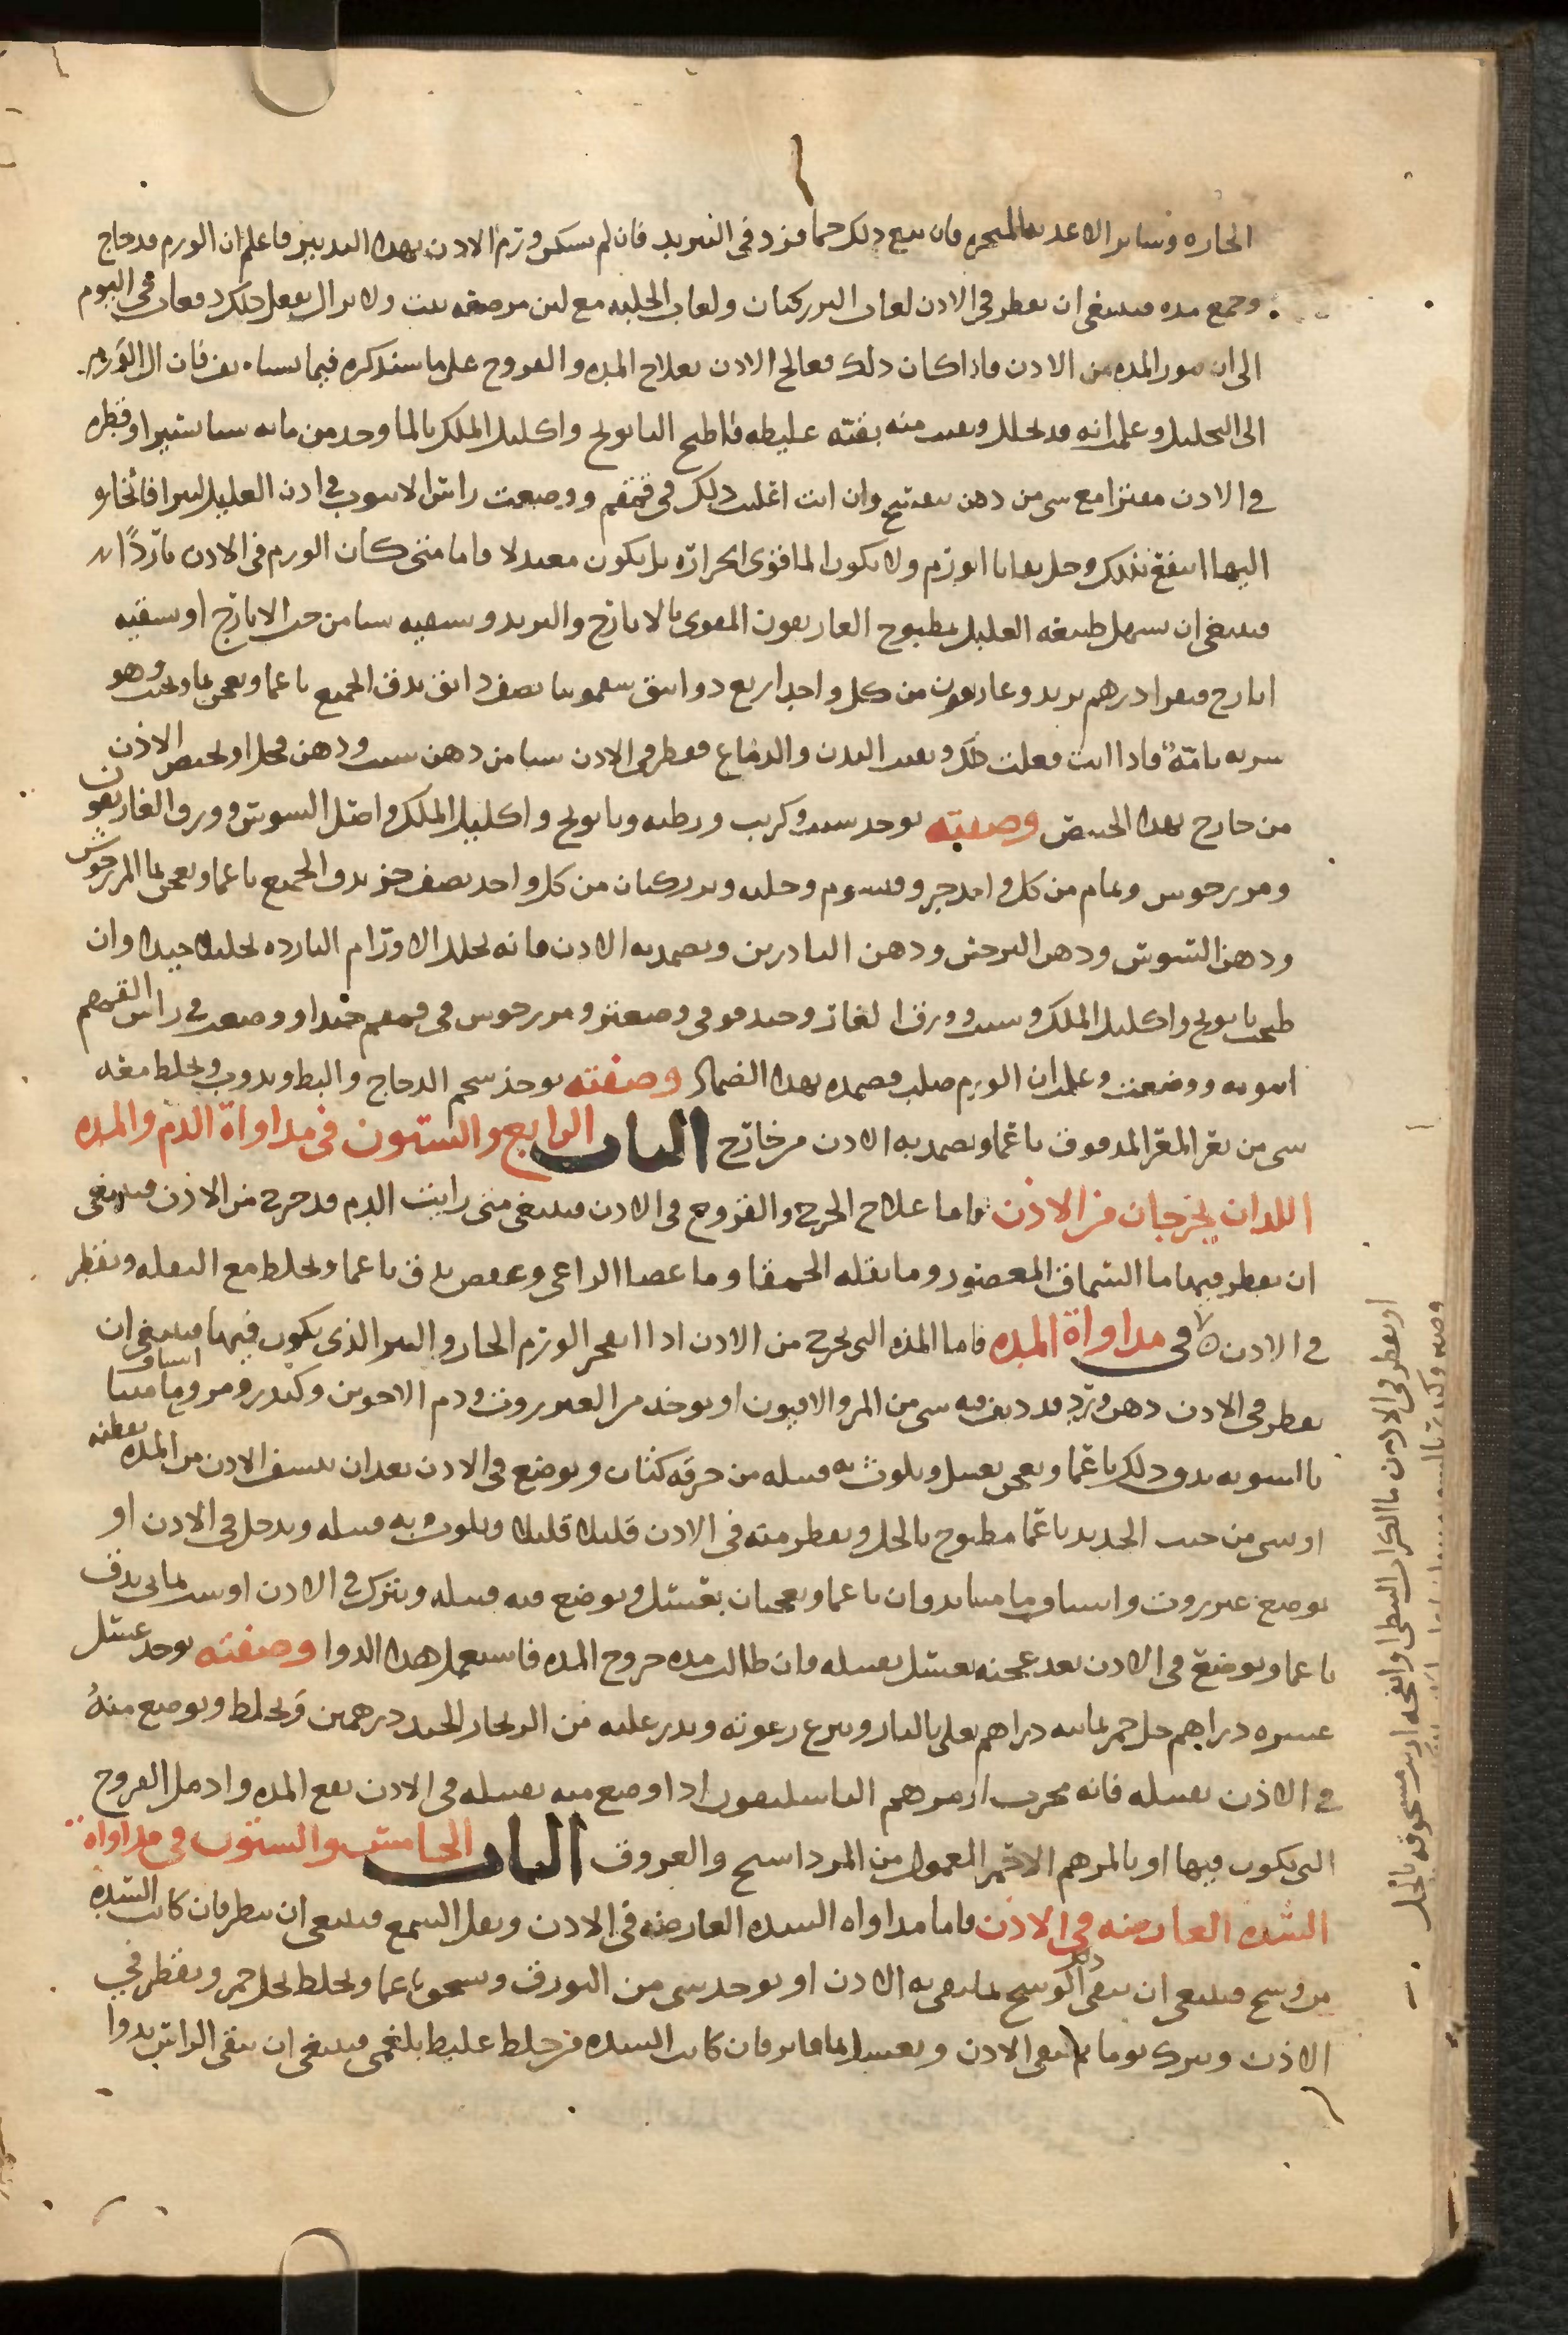 الحاره وساير الاغديه المبخره فان تبع ذلك حما فزد في التبريد فان لم يسكن ورم الادن بهدا التدبير فاعلم ان الورم قد حاج
وجمع مده فينبغي ان يقطر في الادن لعاب البزر كتان ولعاب الحلبه مع لبن مرضعه بنت ولا يزال يفعل دلك دفعات في اليوم
الى ان المده من الادن فاذا كان دلك فعالج الادن بعلاج المده والقروح على ما سنذكره فيما بعد فان ال الورم
الى التحليل وعلمت انه قد تحلل وبقيت منه بقيه غليظه فاطبخ البابونج واكليل الملك بالما وخد من مايه شيا يسيرا وقطره
في الادن مفترا مع شي من دهن بنفسج وان انت اغليت دلك في قمقم ووضعت راس الانبوب في ادن العليل ليترافا بخاره
اليها انتفع بذلك وحلل بقايا الورم ولا يكون الما قوي الحراره بل يكون معتدلا فاما متى كان الورم في الادن باردًا
فينبغي ان يسهل طبيعه العليل بمطبوخ الغاريقون المقوى بالايارج والتربد وسقيه شيا من حب الايارج او سقيه
ايارج فيقرا درهم تربد وغاريقون من كل واحد اربع دوانيق سقمونيا نصف دانق يدق الجميع ناعما ويعجن بما ويحبب وهو
شربه تامّه فاذا انت فعلت ذلك ونقيت البدن والدماغ فقطر في الادن شيا من دهن سبت ودهن فجل او تخبص الاذن
من خارج بهدا الخبيص وصفته يوخد سبت وكرنب ورطبه وبابونج واكليل الملك واصل السوس وورق الغاريقون
ومرزنجوش ونمام من كل واحد جزو وقيسوم وحلبه وبزر كتان من كل واحد نصف جز يدق الجميع ناعما ويعجن بما المرزنجوش
ودهن السوسن ودهن النرجس ودهن النادرين ويضمد به الادن فانه يحلل الاورام البارده تحليلا جيدا وان
طبخت بابونج واكليل الملك وسبت وورق الغار وحندقوقى وصعتر ومرزنجوش في قمقم جيدا ووضعت في راس القمقم
انبوبه ووضعت وعلمت ان الورم صلب فضمده بهدا الضماد وصفته يوخذ شحم الدجاج والبط ويدوب ويخلط معه
شي من بعر المعز المدقوق ناعما ويضمد به الادن من خارج الباب الرابع والستون في مداواة الدم والمده
اللدان يخرجان من الاذن واما علاج الجرح والقروح في الادن فينبغي متى رايت الدم قد خرج من الاذن فينبغي
ان يقطر فيها ما السماق المعصور وما بقله الحمقا وما عصا الراعي وعفص يدق ناعما ويخلط مع البقله ويقطر
في الادن في مداواة المده فاما المده التي تخرج من الادن اذا انفجر الورم الحار والبثر الذي يكون فيها فينبغي ان
يقطر في الادن دهن ورد قد ديف فيه شي من المر والافيون او يوخد من العنزروت ودم الاخوين وكندر ومر وماميثا اشياف
بالسويه يدق دلك ناعما ويعجن بعسل ويلوث به فتيله من خرقه كتان ويوضع في الادن بعد ان تنشف الادن من المده بقطنه
او شي من خبث الحديد ناعما مطبوخ بالخل ويقطر منه في الادن قليلا قليلا ويلوث به فتيله ويدخل في الادن او
يوضع عنزروت واشياف ماميثا يدقان ناعما ويعجنان بعسل ويوضع فيه فتيله ويترك في الادن او شب يماني يدق
ناعما ويوضع في الادن بعد عجنه بعسل بفتيله فان طالت مده خروج المده فاستعمل هدا الدوا وصفته يوخد عسل
عشره دراهم خل خمر ثمانيه دراهم يغلى بالنار وينزع رغوته ويدر عليه من الزنجار الجيد درهمين ويخلط ويوضع منهُ
في الاذن بفتيله فانه مجرب او مرهم الباسليقون ادا وضع منه بفتيله في الادن نفع المده وادمل القروح
التي يكون فيها او بالمرهم الاحمر المعمول من المرداسنج والعروق الباب الخامس والستون في مداواه
السده العارضه في الادن فاما مداواه السده العارضه في الادن وثقل السمع فينبغي ان ينظر فان كانت السده
من وسخ فينبغي ان ينقى دلك الوسخ بما ينقي به الادن او يوخد شي من البورق ويسحق ناعما ويخلط بخل خمر ويقطر في
الاذن ويترك يوما ثم تنقي الادن ويغسل بما فاتر فان كانت السده من خلط غليظ بلغمي فينبغي ان ينقى الراس بدوا
او يقطر في الادن ما الكراث النبطي او انفحه ارنب مسحوقه بالخل